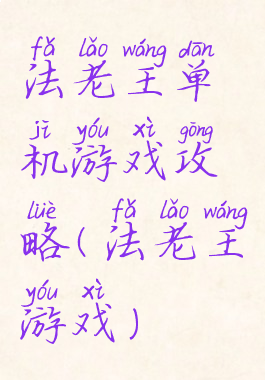 fǎ lǎo wáng dān
法老王单
jī yóu xì gōng
机游戏攻
lüè fǎ lǎo wáng
略(法老王
yóu xì
游戏)